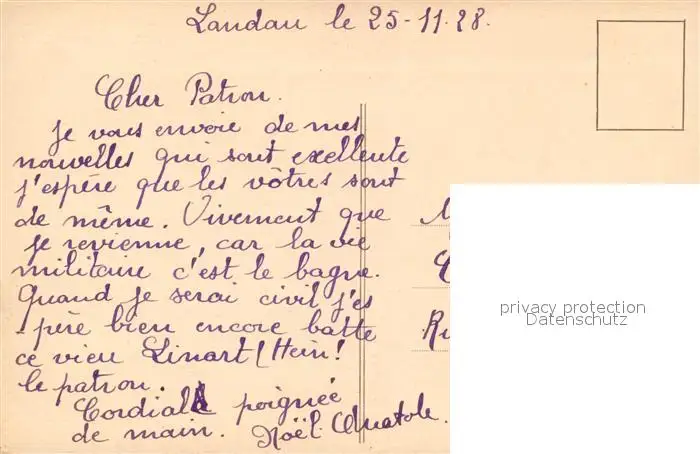 Landau le 25-11.28.
Cher Patron.
je vous envoie de mes
nouvelles qui sont exellente
j'espère que les vôtres sont
de même. Vivement que
je revienne, car la vie
militaire c'est le bagne.
Quand je serai civil j'es
-père bien encore batte
ce vieu Linart (Hein!
le patron.
Cordiale poignée
de main. Noël Anatole.
privacy protection
Datenschutz